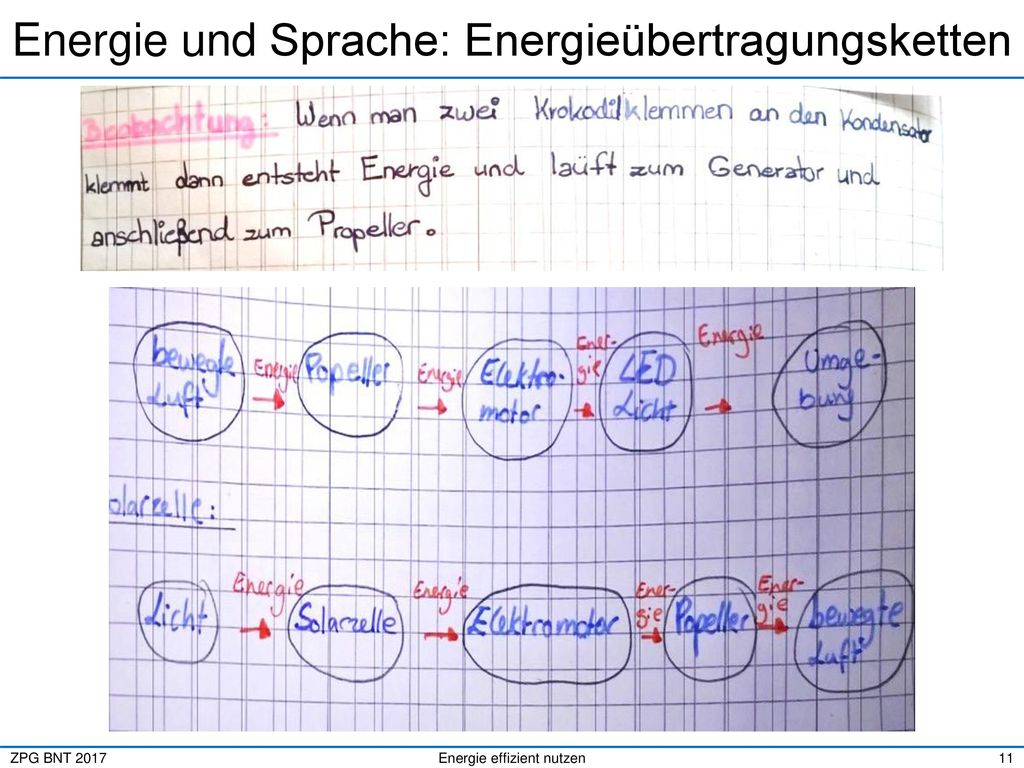 Energie und Sprache: Energieübertragungsketten
Beobachtung: Wenn man zwei Krokodilklemmen an den Kondensator
klemmt dann entsteht Energie und laüft zum Generator und
anschließend zum Propeller.
bewegte
Luft
Energie
Popeller
Energie
Elektro-
motor
Ener-
gie
LED
Licht
Energie
Umge-
bung
olarzelle:
Licht
Energie
Solarzelle
Energie
Elektromotor
Ener-
gie
Popeller
Ener-
gie
bewegte
Luft
ZPG BNT 2017
Energie effizient nutzen
11